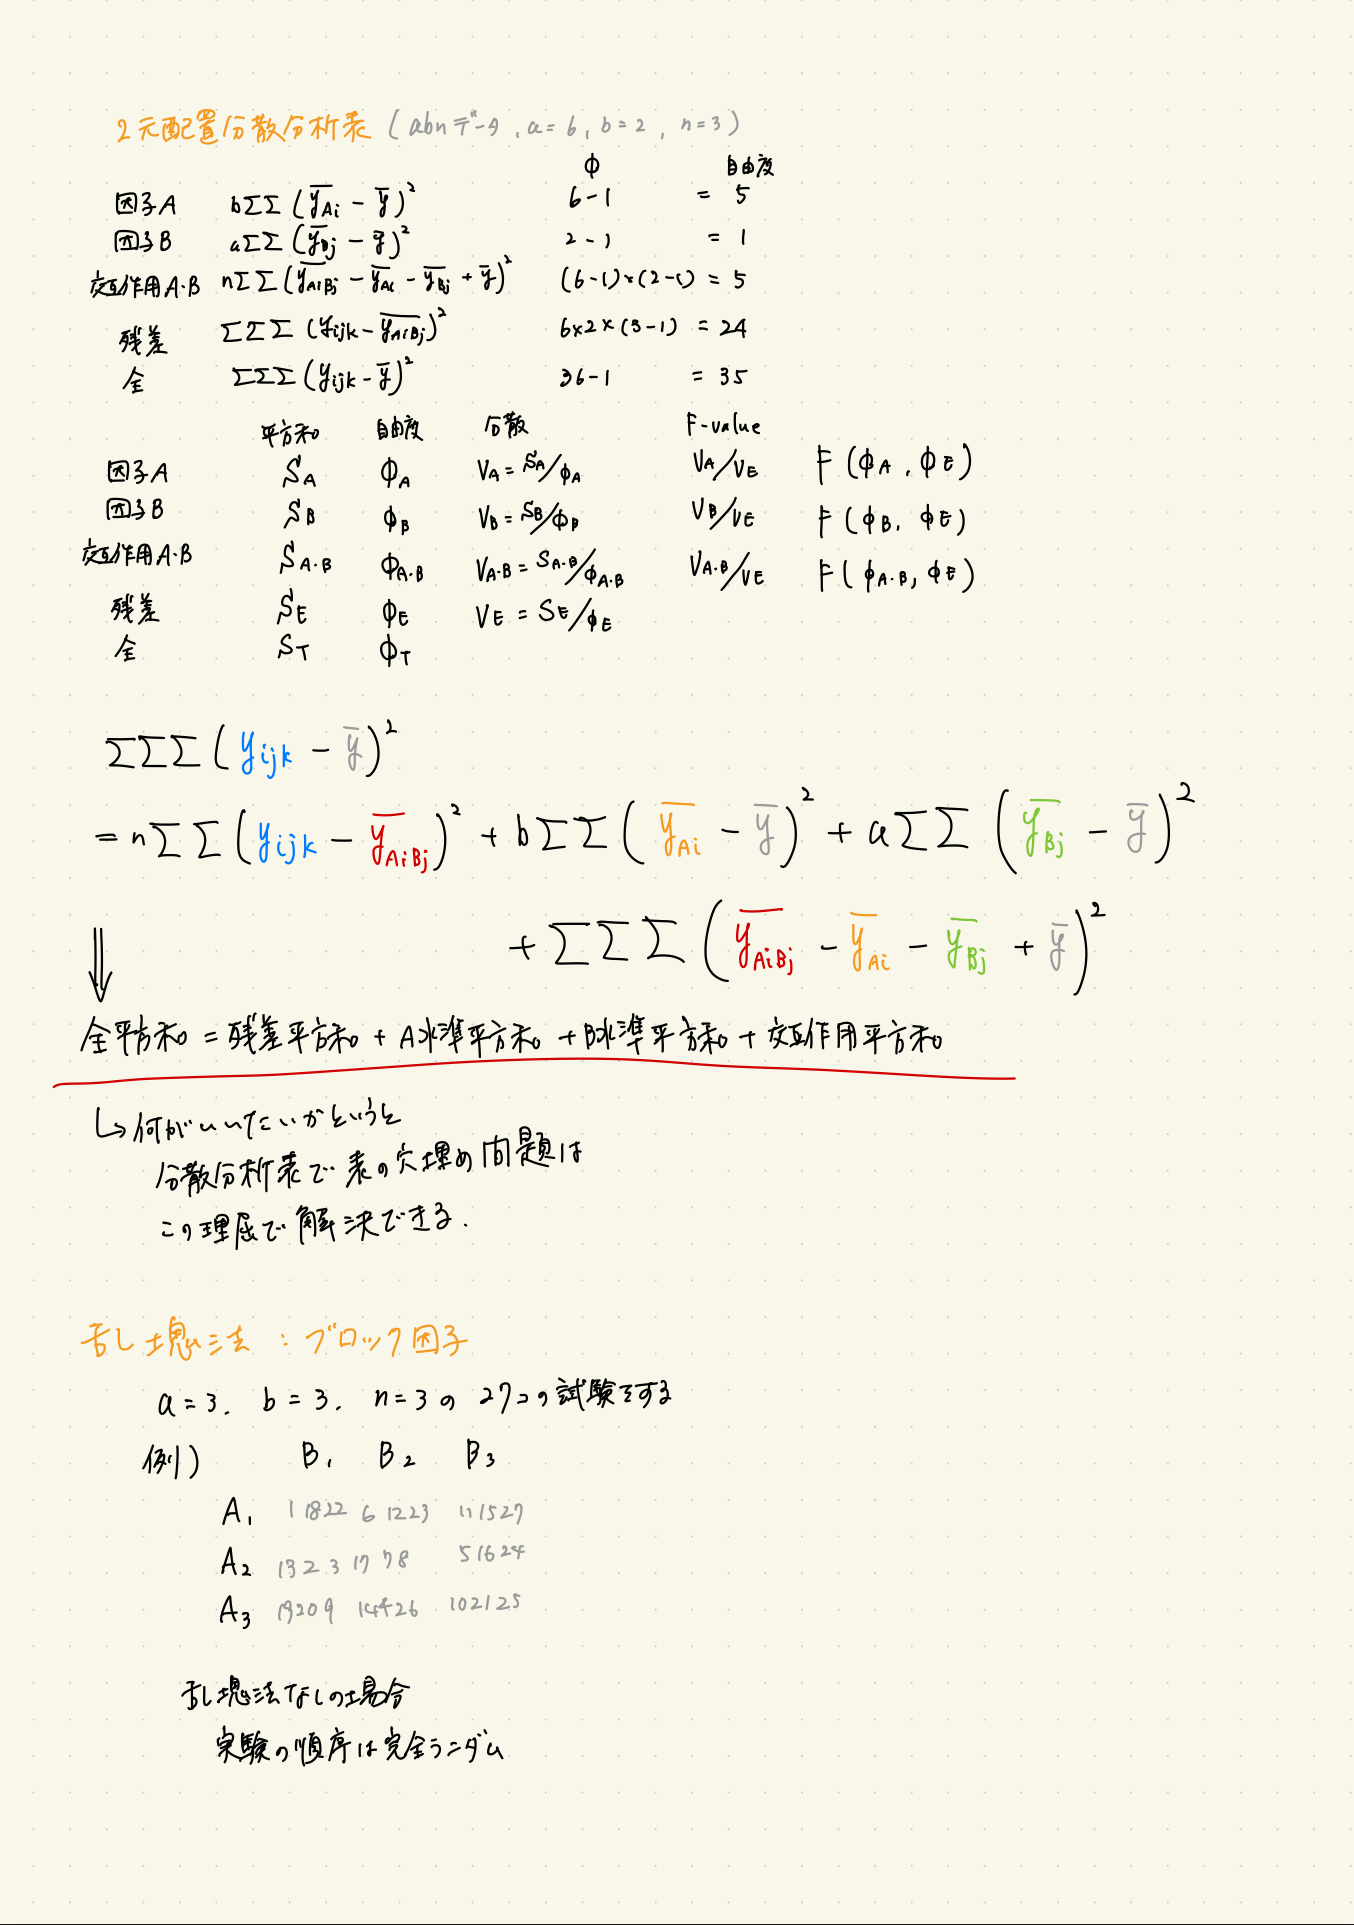 2元配置分散分析表 (abnデータ, a=6, b=2, n=3)
Φ 自由度
因子A b∑∑(y̅Ai − y̅)² 6−1 = 5
因子B a∑∑(y̅Bj − y̅)² 2−1 = 1
交互作用A·B n∑∑(y̅AiBj − y̅Ai − y̅Bj + y̅)² (6−1)×(2−1) = 5
残差 ∑∑∑(yijk − y̅AiBj)² 6×2×(3−1) = 24
全 ∑∑∑(yijk − y̅)² 36−1 = 35
平方和 自由度 分散 F-value
因子A SA ΦA VA = SA/ΦA VA/VE F(ΦA, ΦE)
因子B SB ΦB VB = SB/ΦB VB/VE F(ΦB, ΦE)
交互作用A·B SA·B ΦA·B VA·B = SA·B/ΦA·B VA·B/VE F(ΦA·B, ΦE)
残差 SE ΦE VE = SE/ΦE
全 ST ΦT
∑∑∑(yijk − y̅)²
= n∑∑(yijk − y̅AiBj)² + b∑∑(y̅Ai − y̅)² + a∑∑(y̅Bj − y̅)²
+ ∑∑∑(y̅AiBj − y̅Ai − y̅Bj + y̅)²
⇓
全平方和 = 残差平方和 + A水準平方和 + B水準平方和 + 交互作用平方和
↳ 何がいいたいかというと
分散分析表で表の穴埋め問題は
この理屈で解決できる.
乱塊法 : ブロック因子
a=3. b=3. n=3の 27コの試験をする
例) B1 B2 B3
A1 1 18 22 6 12 23 11 15 27
A2 13 2 3 17 7 8 5 16 24
A3 19 20 9 14 4 26 10 21 25
乱塊法なしの場合
実験の順序は完全ランダム